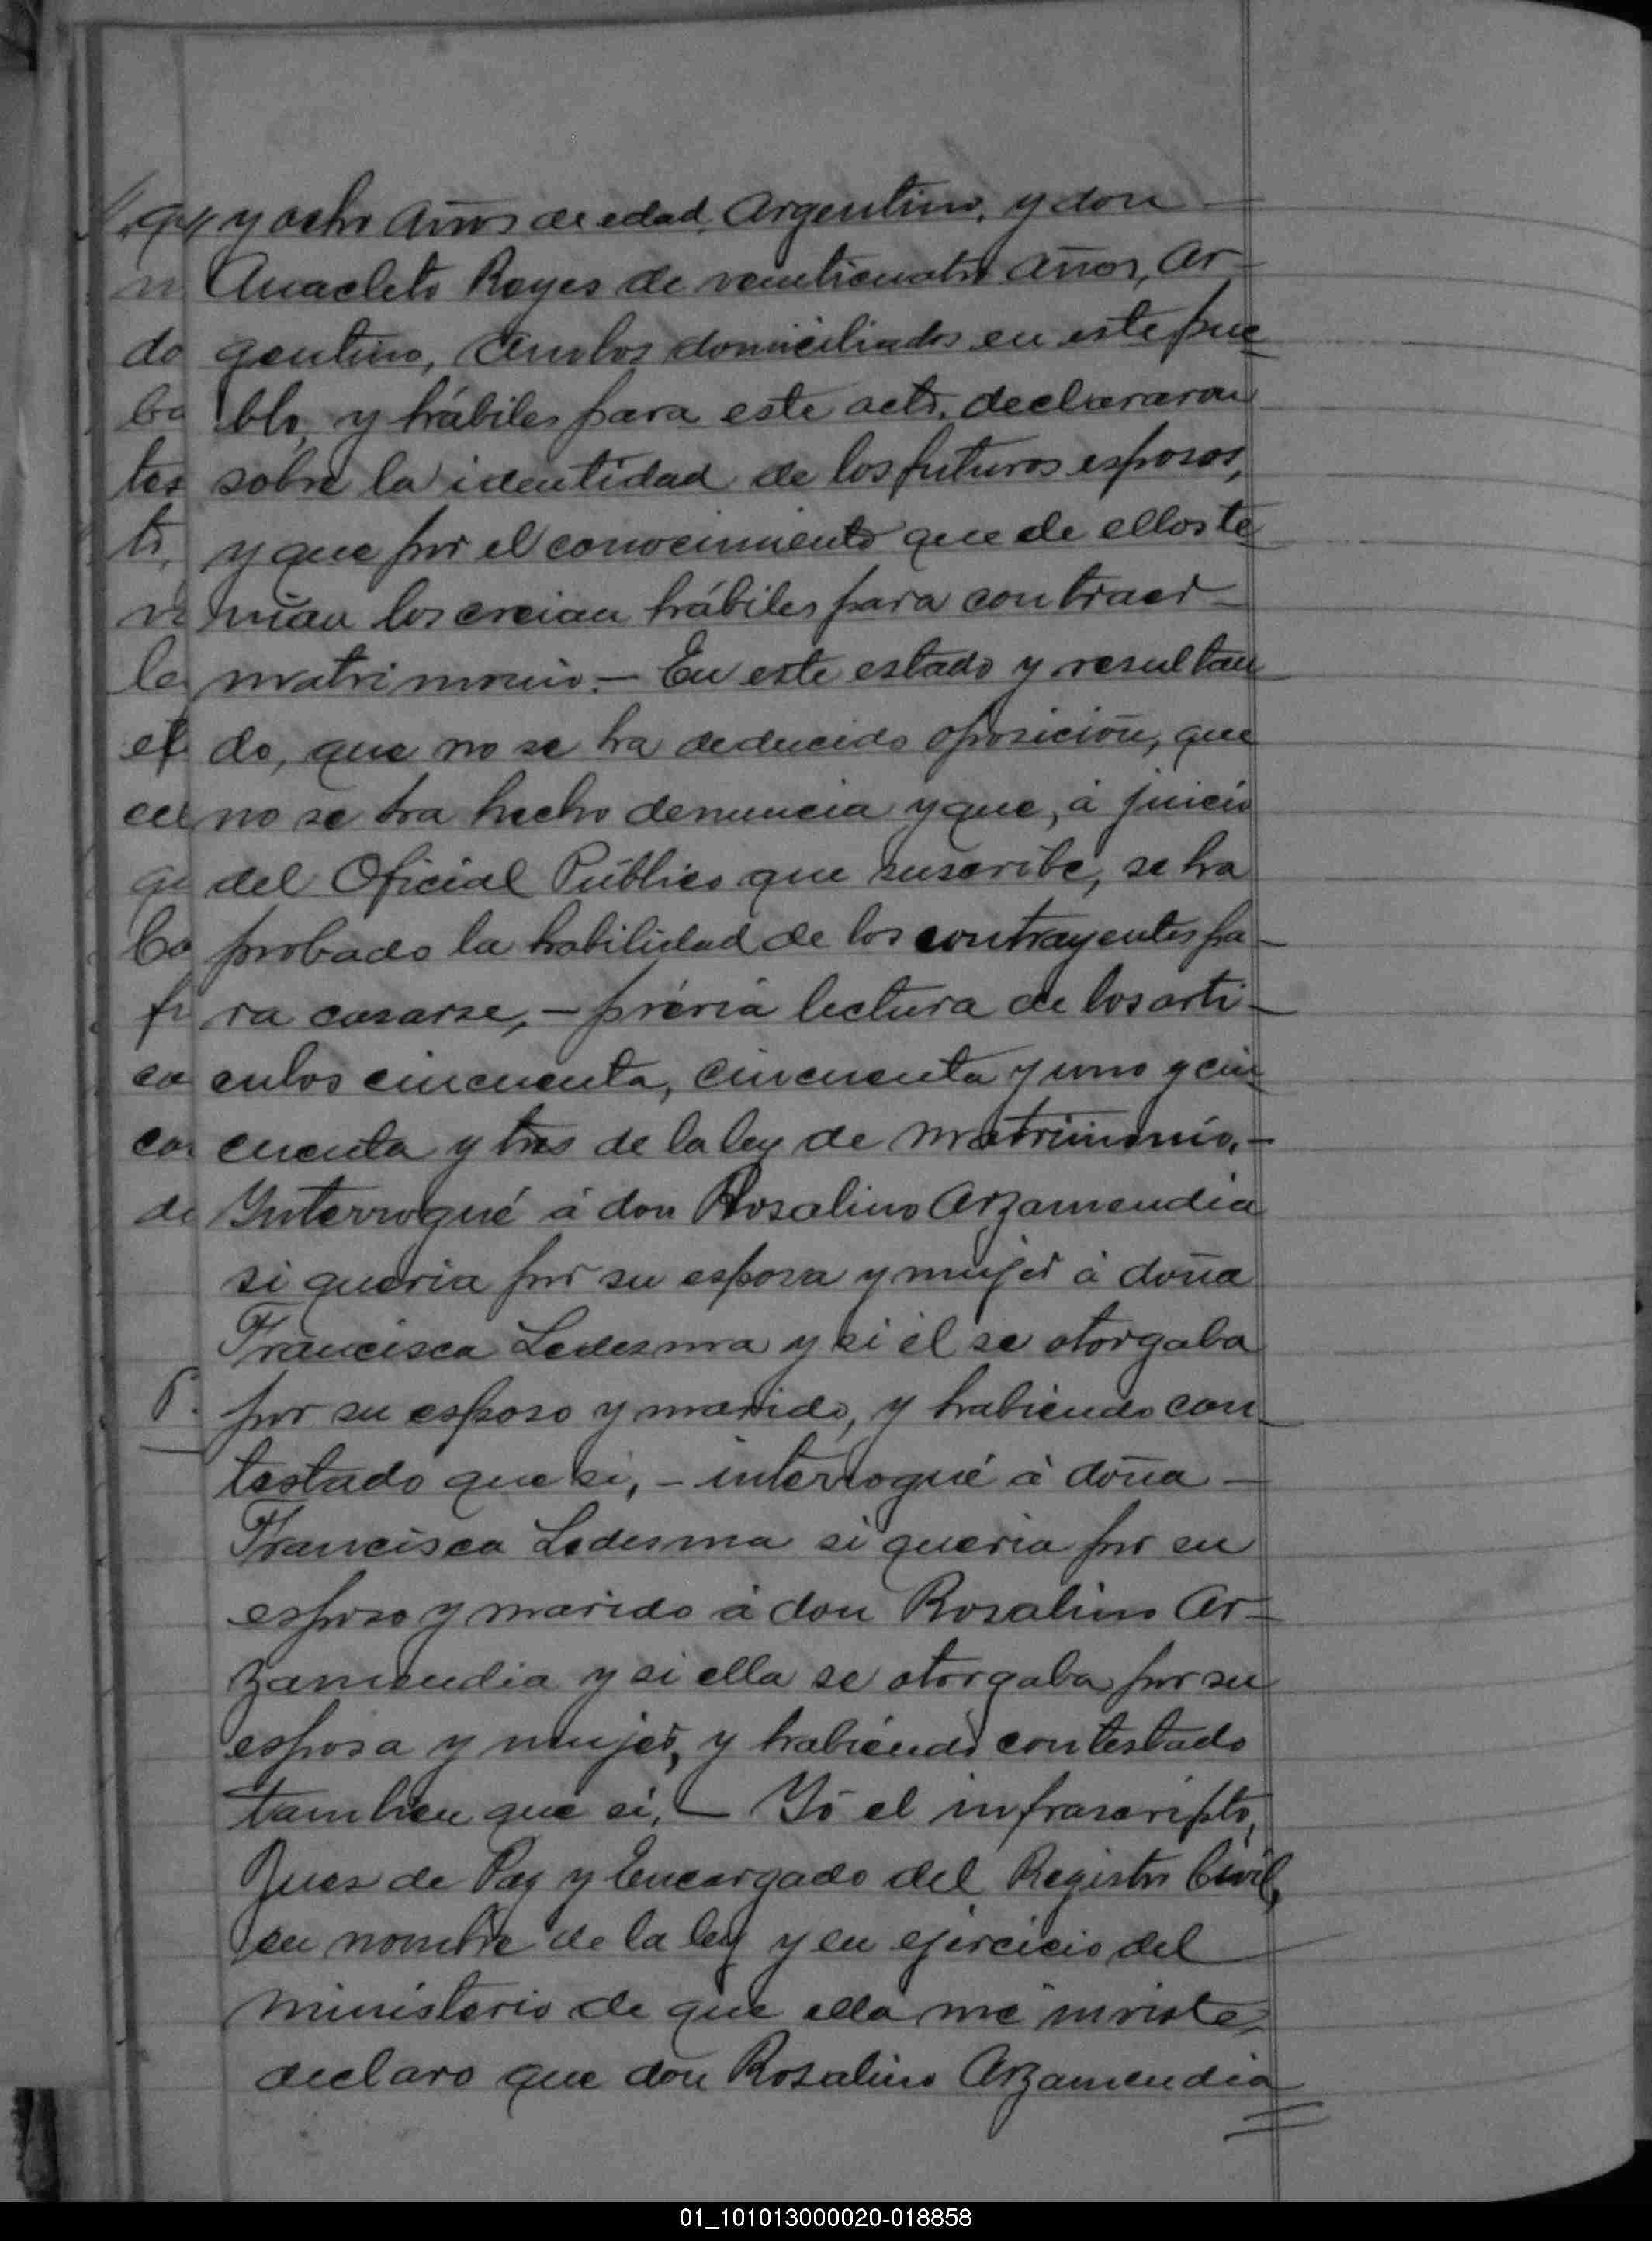 y ocho años de edad, Argentino, y don
Anacleto Reyes de veinticuatro años, Ar-
gentino, ambos domiciliados en este pue
blo, y hábiles para este acto, declararon
sobre la identidad de los futuros esposos,
y que por el conocimiento que de ellos te
nian los creian hábiles para contraer
matrimonio.- En este estado y resultan
do, que no se ha deducido oposición, que
no se ha hecho denuncia y que, á juicio
del Oficial Público que suscribe, se ha
probado la habilidad de los contrayentes pa-
ra casarse, - prévia lectura de los arti-
culos cincuenta, cincuenta y uno y cin
cuenta y tres de la ley de matrimonio, -
Interrogué á don Rosalino Arzamendia
si queria por su esposa y mujer á doña
Francisca Ledesma y si él se otorgaba
por su esposo y marido, y habiendo con
testado que si, - interrogué á doña -
Francisca Ledesma si queria por su
esposo y marido á don Rosalino Ar-
zamendia y si ella se otorgaba por su
esposa y mujer, y habiendo contestado
tambien que si, - Yó el infrascripto,
Juez de Paz y Encargado del Registro Civil,
en nombre de la ley y en ejercicio del
ministerio de que ella me inviste,
declaro que don Rosalino Arzamendia
01_101013000020-018858